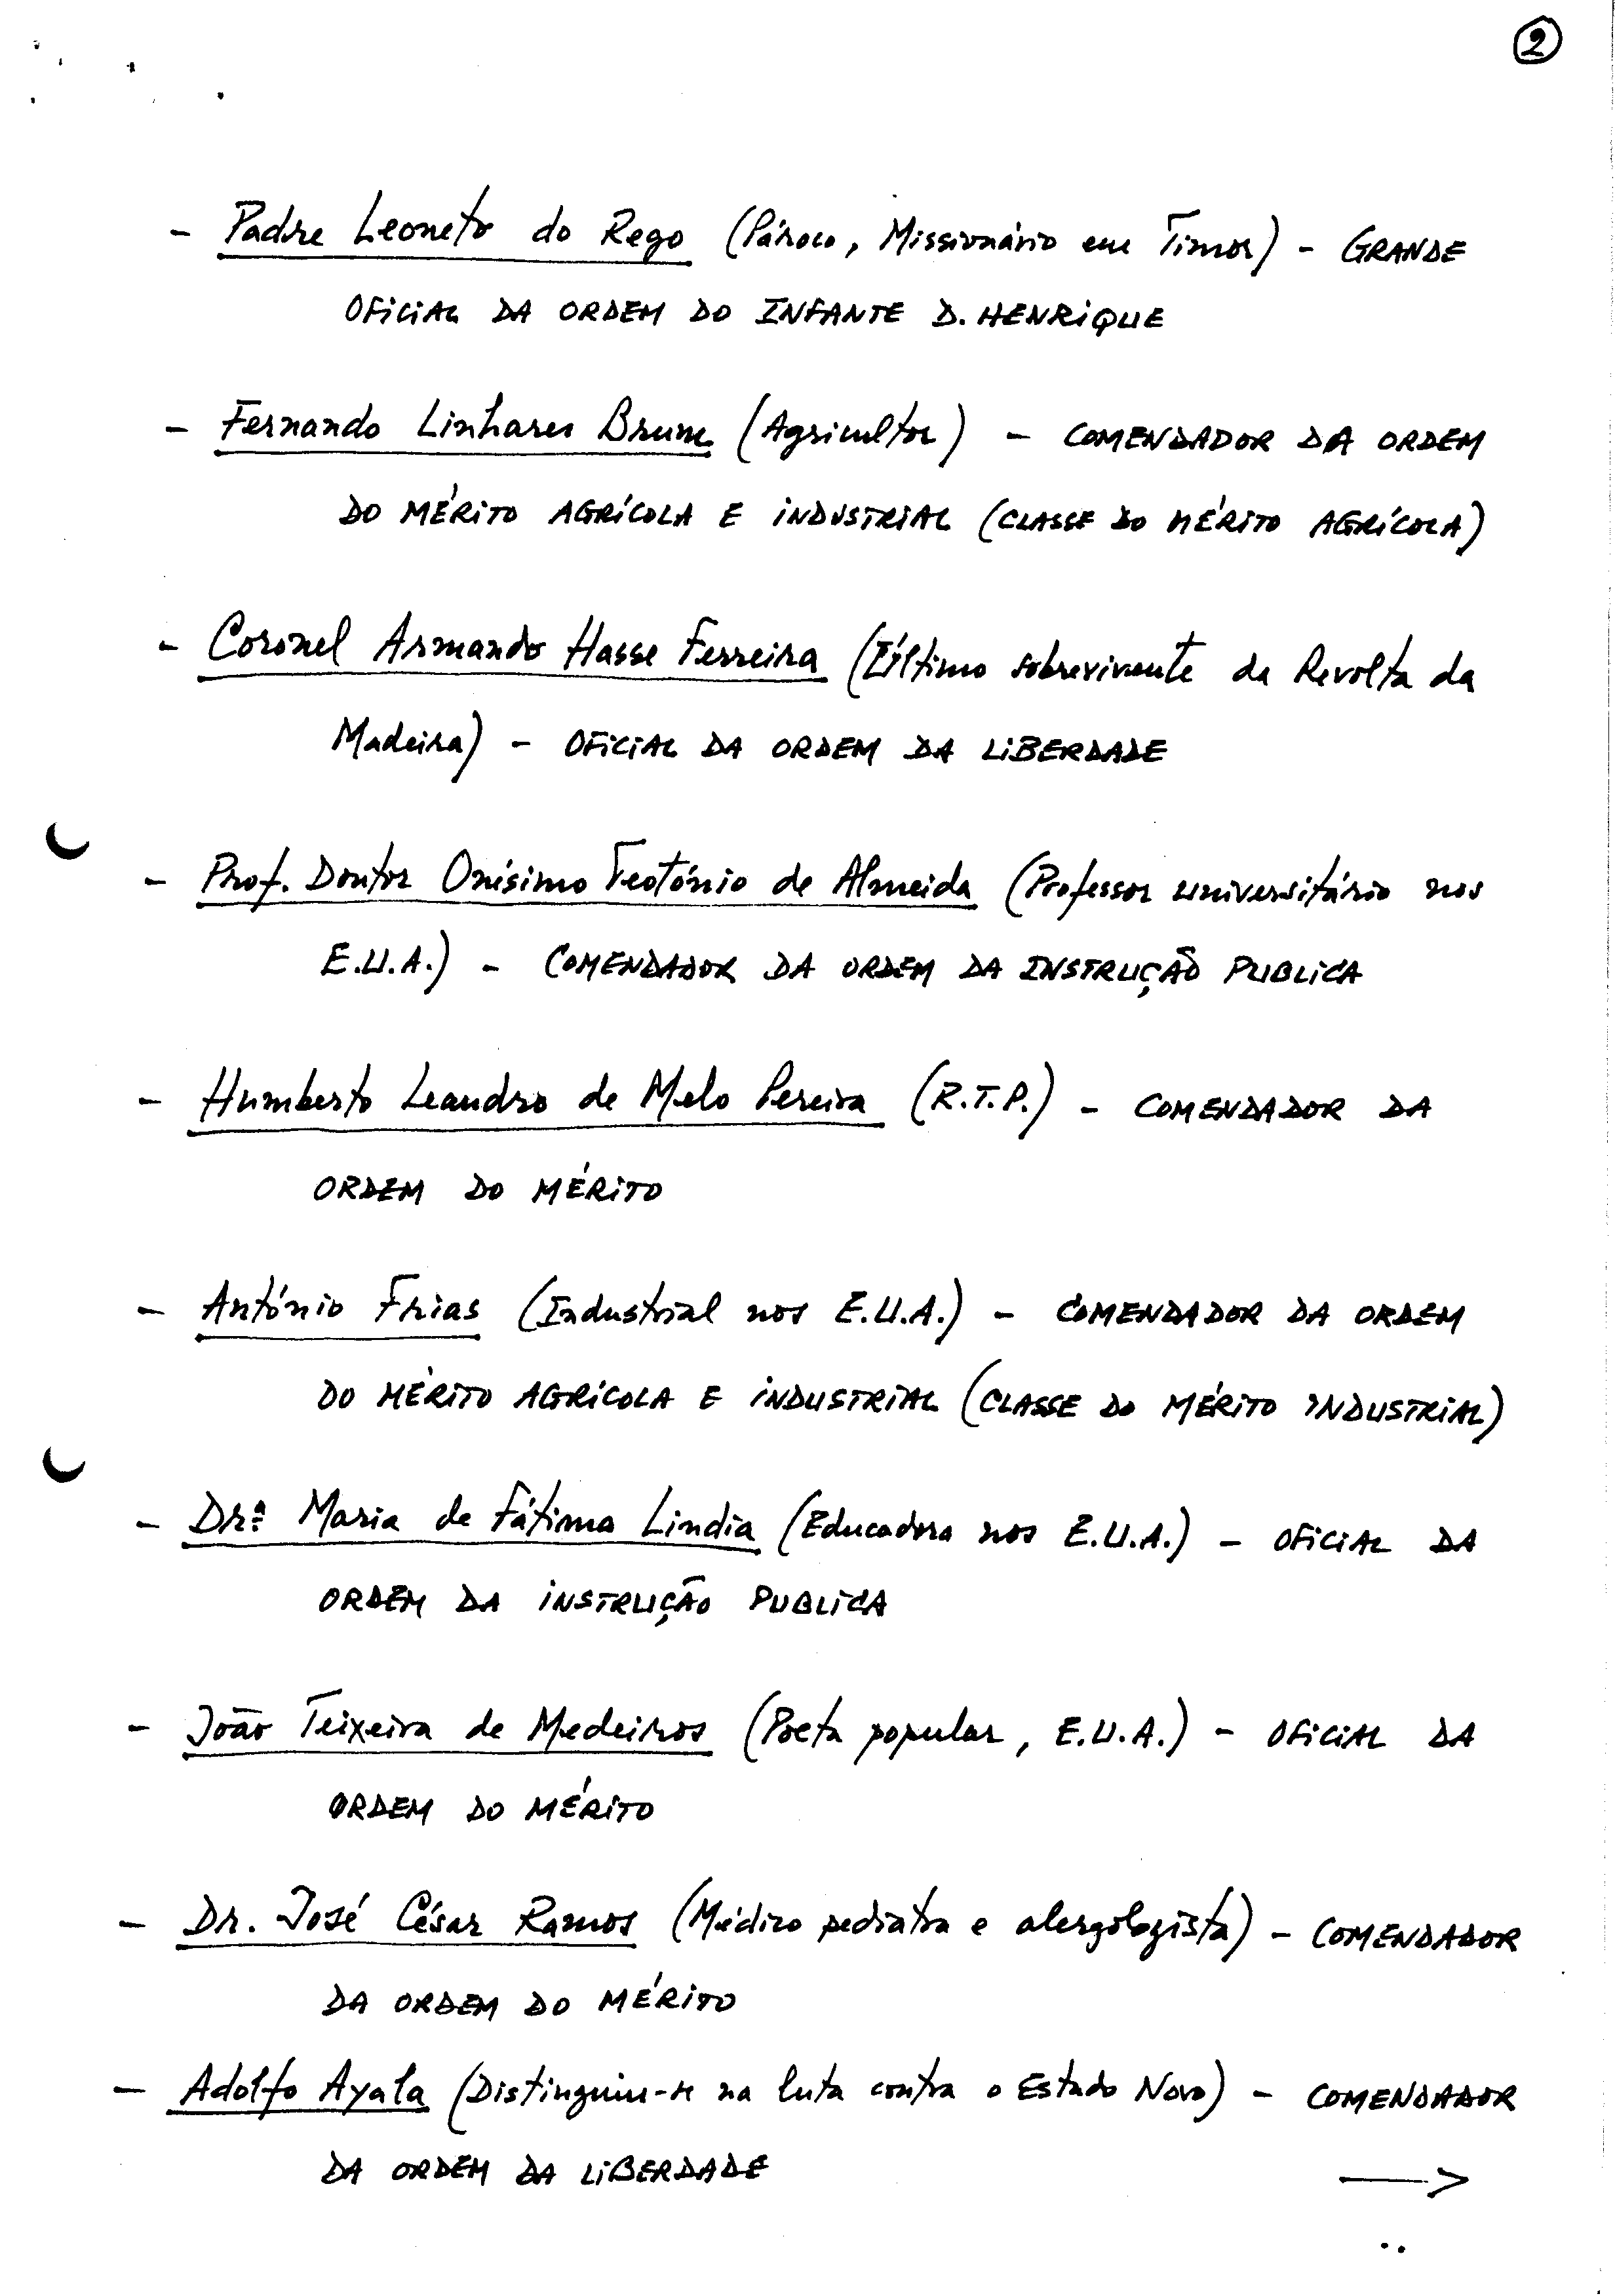 2
- Padre Leoneto do Rego (Pároco, Missionário em Timor) - GRANDE
OFICIAL DA ORDEM DO INFANTE D. HENRIQUE
- Fernando Linhares Brum (Agricultor) - COMENDADOR DA ORDEM
DO MÉRITO AGRÍCOLA E INDUSTRIAL (CLASSE DO MÉRITO AGRÍCOLA)
- Coronel Armando Hasse Ferreira (Último sobrevivente da Revolta da
Madeira) - OFICIAL DA ORDEM DA LIBERDADE
- Prof. Doutor Onésimo Teotónio de Almeida (Professor universitário nos
E.U.A.) - COMENDADOR DA ORDEM DA INSTRUÇÃO PUBLICA
- Humberto Leandro de Melo Pereira (R.T.P.) - COMENDADOR DA
ORDEM DO MÉRITO
- António Frias (Industrial nos E.U.A.) - COMENDADOR DA ORDEM
DO MÉRITO AGRÍCOLA E INDUSTRIAL (CLASSE DO MÉRITO INDUSTRIAL)
- Drª Maria de Fátima Lindia (Educadora nos E.U.A.) - OFICIAL DA
ORDEM DA INSTRUÇÃO PUBLICA
- João Teixeira de Medeiros (Poeta popular, E.U.A.) - OFICIAL DA
ORDEM DO MÉRITO
- Dr. José César Ramos (Médico pediatra e alergologista) - COMENDADOR
DA ORDEM DO MÉRITO
- Adolfo Ayala (Distinguiu-se na luta contra o Estado Novo) - COMENDADOR
DA ORDEM DA LIBERDADE